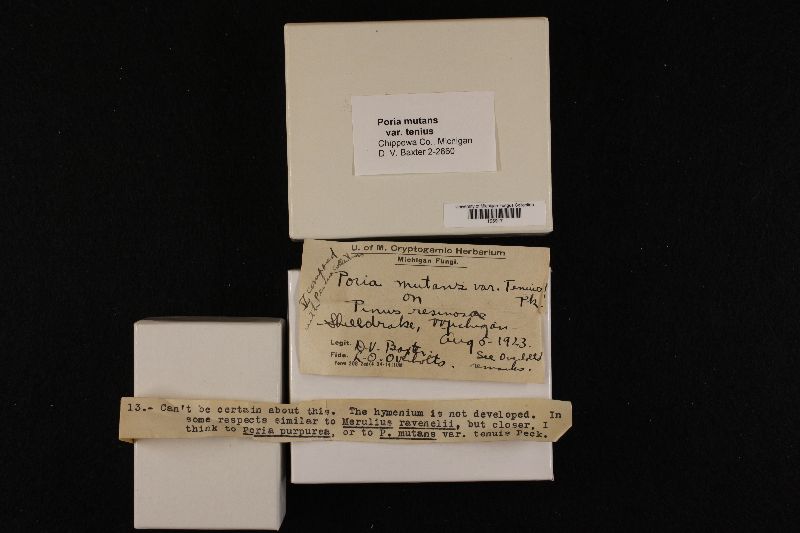 Poria mutans
var. tenius
Chippowa Co., Michigan
D. V. Baxter 2-2650
University of Michigan Fungus Collection
U. of M. Cryptogamic Herbarium
Michigan Fungi.
compared
with
Poria mutans var. Tenuis
Pk.
on
Pinus resinosae
Shelldrake, Michigan
Aug 5-1923.
Legit. D.V. Baxter
Fide. L.O. Overholts.
See Overholts
remarks.
13.- Can't be certain about this. The hymenium is not developed. In
some respects similar to Merulius ravenelii, but closer, I
think to Poria purpurea, or to P. mutans var. tenuis Peck.